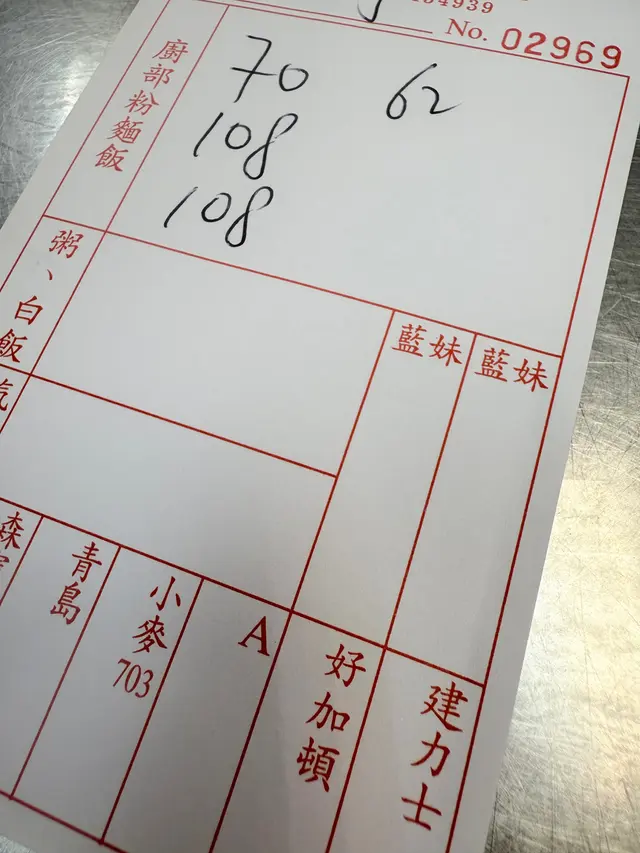 No. 02969
廚部粉麵飯
70 62
108
108
粥、白飯
藍妹
藍妹
青島
小麥703
A
好加頓
建力士